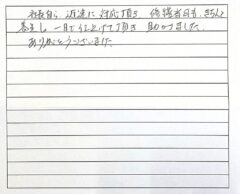 社長自ら 迅速に対応頂き 修繕者の方、きちんと
養生し 一日で仕上げて頂き 助かりました。
ありがとうございました